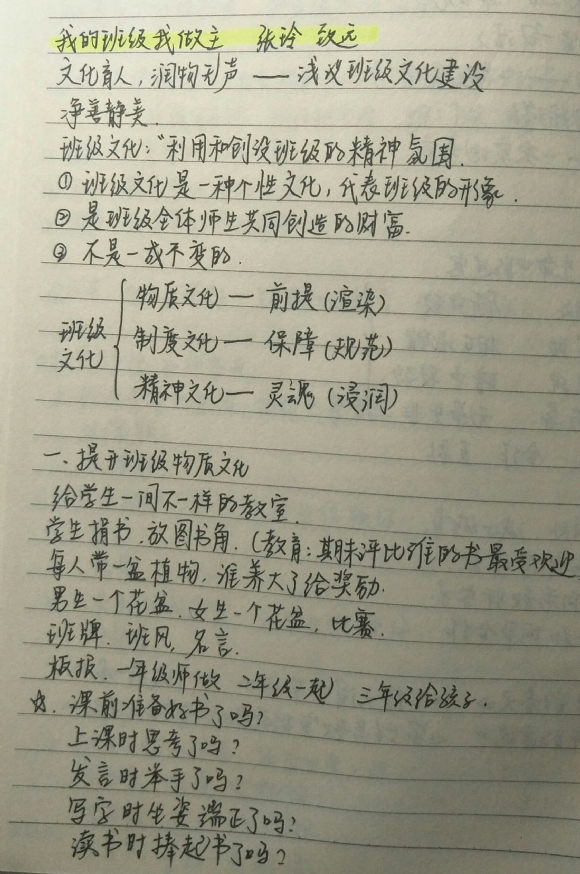 我的班级我做主 张玲 致远
文化育人，润物无声 —— 浅议班级文化建设
净善静美.
班级文化："利用和创设班级的精神氛围.
① 班级文化是一种个性文化，代表班级的形象.
② 是班级全体师生共同创造的财富.
③ 不是一成不变的.
班级文化
物质文化 — 前提（渲染）
制度文化 — 保障（规范）
精神文化 — 灵魂（浸润）
一、提升班级物质文化
给学生一间不一样的教室.
学生捐书.放图书角.（教育：期末评比谁的书最受欢迎
每人带一盆植物，谁养大了给奖励.
男生一个花盆.女生一个花盆，比赛.
班牌.班风，名言.
板报.一年级师做 二年级一起） 三年级给孩子.
☆.课前准备好书了吗？
上课时思考了吗？
发言时举手了吗？
写字时坐姿端正了吗？
读书时捧起书了吗？